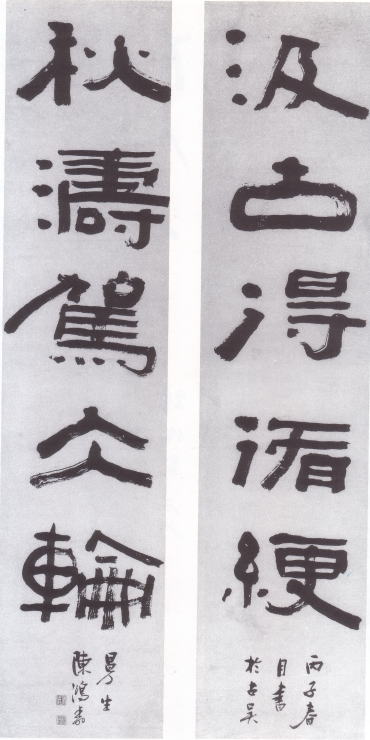 汲古得脩綆
丙子春
日書
於古吳
秋濤駕大輪
曼生
陳鴻壽